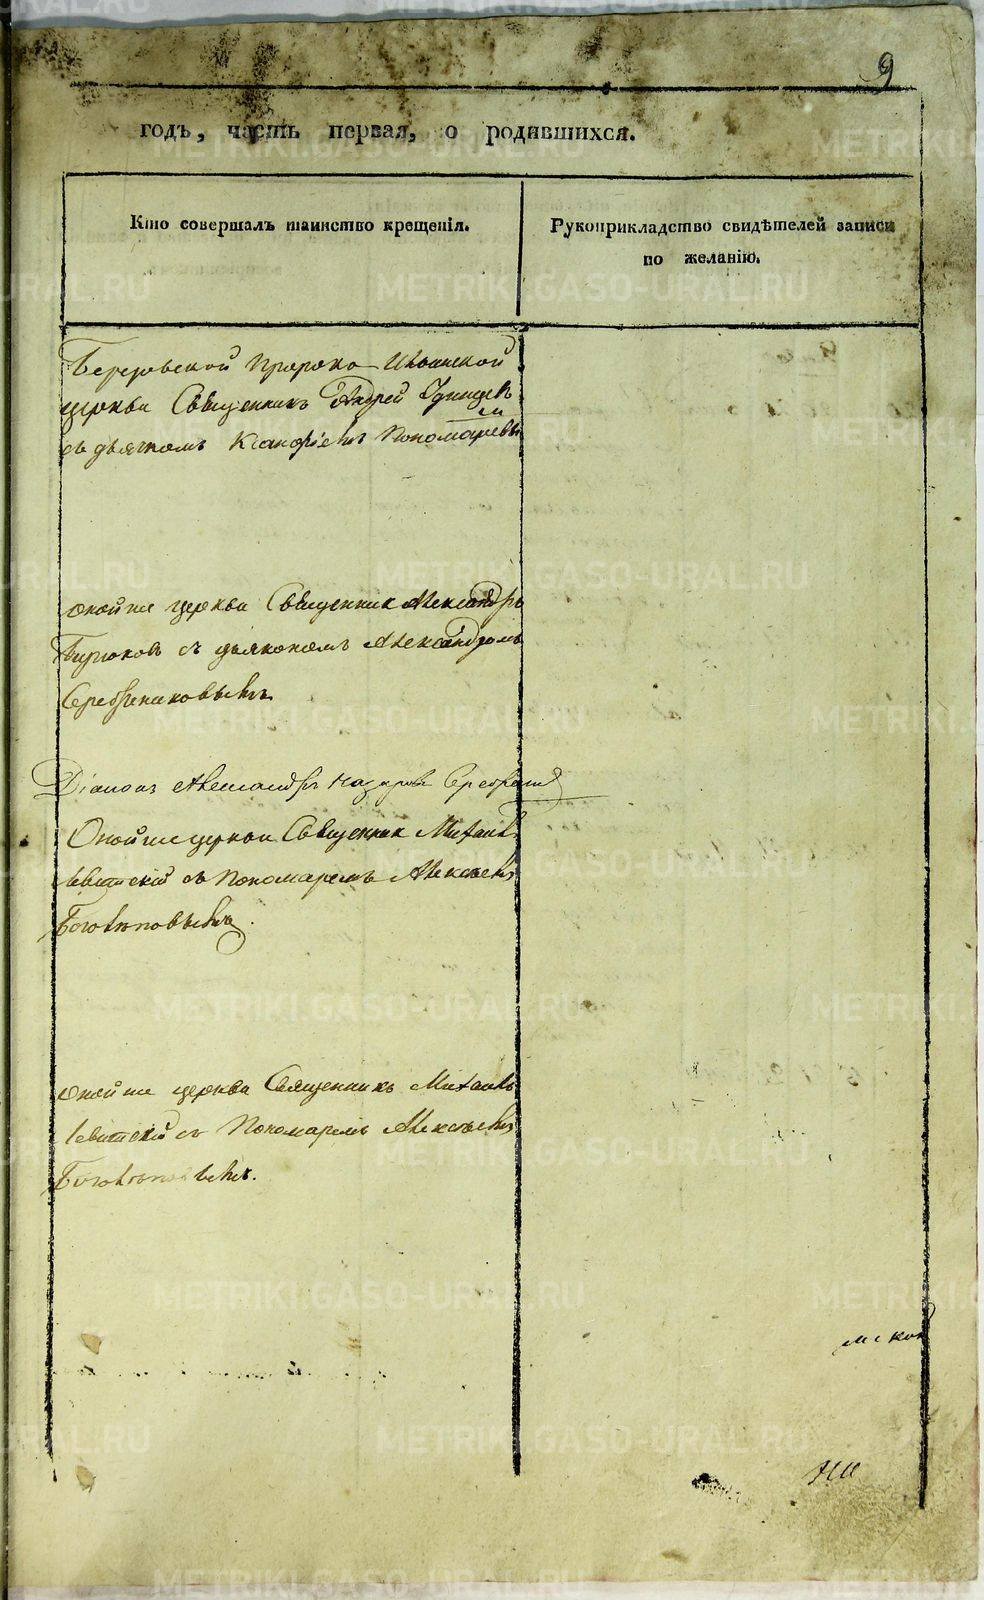 9
годъ, часть первая, о родившихся.
Кто совершалъ таинство крещенія.
Рукоприкладство свидѣтелей записи
по желанію.
Березовской Пророко Ильинской
церкви Священникъ Андрей
съ дьячкомъ Пономаревы
мъ
оной же церкви Священник Александръ
Бирюковъ съ дьякономъ Александромъ
Серебрениковымъ
Діаконъ Александръ Серебрен
Оной же церкви Священник Михаилъ
Левитский съ Пономаремъ Алексѣемъ
Боголѣповымъ.
оной же церкви Священникъ Михаилъ
Левитский съ Пономаремъ Алексѣемъ
Боголѣповымъ.
ской
METRIKI.GASO-URAL.RU